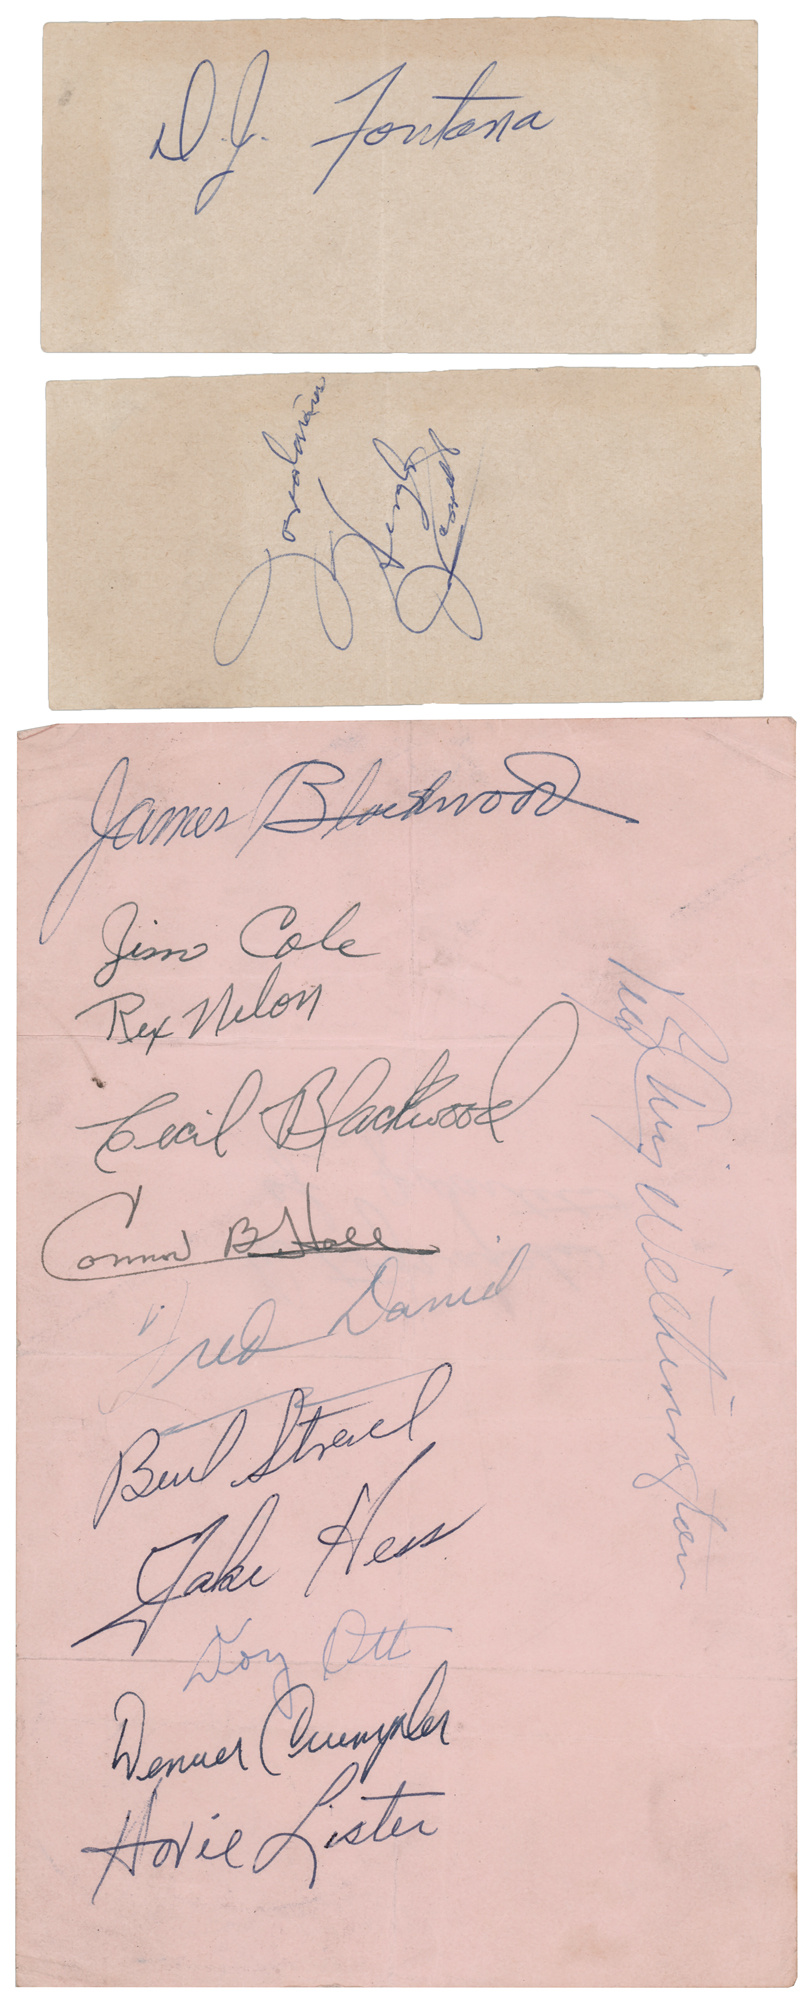 D.J. Fontana
James Blackwood
Jim Cole
Rex Nelon
Cecil Blackwood
Connor B. Hall
Fred Daniel
Berl Strevel
Jake Hess
Doy Ott
Denver Crumpler
Hovie Lister